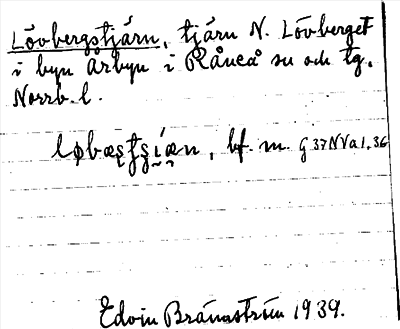 Lövbergstjärn, tjärn N. Lövberget
i byn Årbyn i Råneå sn och tg.
Norrb. l.
bf. m. G 37 NVa 1.36
Edvin Brännström 1939.